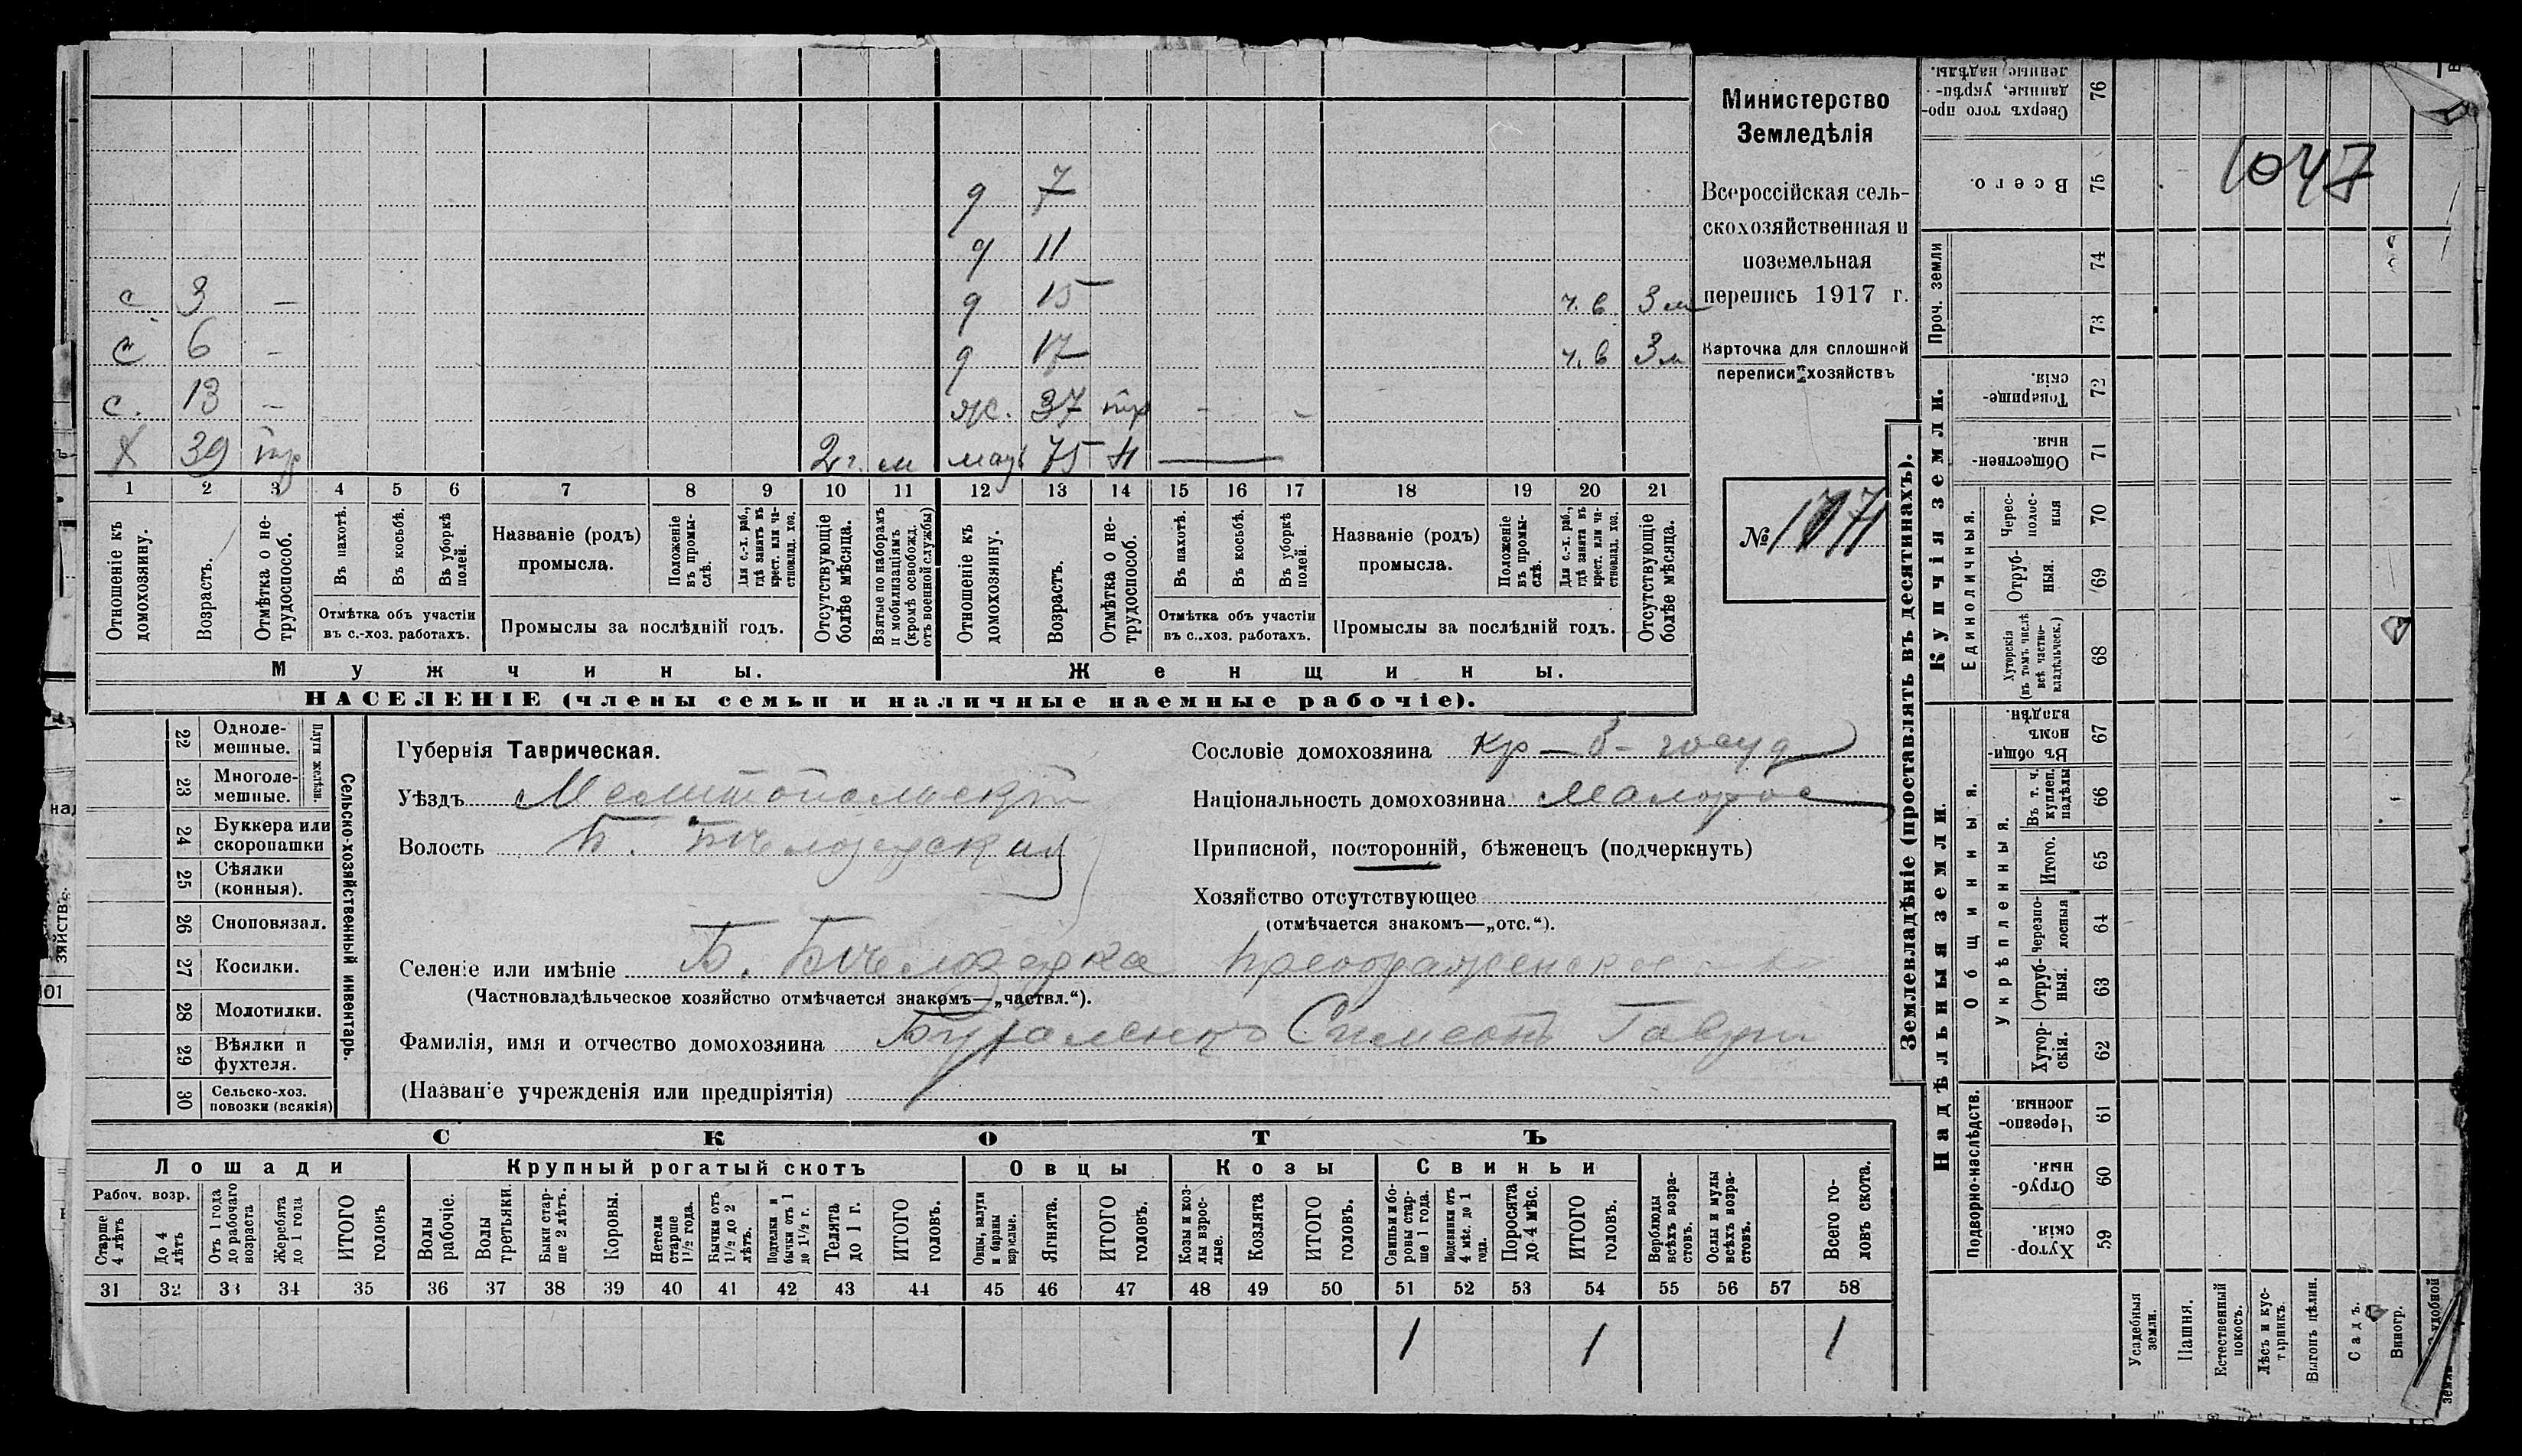 Министерство
Земледѣлія
Всероссійская сель-
скохозяйственная и
поземельная
перепись 1917 г.
Карточка для сплошной
переписи хозяйствъ
№
1047
д 7
д 11
с 3 — д 15 ч. в 3 м
с 6 — д 17 ч. в 3 м
с. 13 — ж. 37 тр - -
х 39 тр 2 г. м мать 75 н —
1 2 3 4 5 6 7 8 9 10 11 12 13 14 15 16 17 18 19 20 21
Отношеніе къ домохозяину.
Возрастъ.
Отмѣтка о не-трудоспособ.
Въ пахотѣ.
Въ косьбѣ.
Въ уборкѣ полей.
Отмѣтка объ участіи въ с.-хоз. работахъ.
Названіе (родъ) промысла.
Положеніе въ промы-слѣ.
Для с.-х. раб., гдѣ занятъ въ крест. или ча-стновлад. хоз.
Промыслы за послѣдній годъ.
Отсутствующіе болѣе мѣсяца.
Взятые по наборамъ и мобилизаціямъ (кромѣ освобожд. отъ военной службы)
Отношеніе къ домохозяину.
Возрастъ.
Отмѣтка о не-трудоспособ.
Въ пахотѣ.
Въ косьбѣ.
Въ уборкѣ полей.
Отмѣтка объ участіи въ с.-хоз. работахъ.
Названіе (родъ) промысла.
Положеніе въ промы-слѣ.
Для с.-х. раб., гдѣ занята въ крест. или ча-стновлад. хоз.
Промыслы за послѣдній годъ.
Отсутствующіе болѣе мѣсяца.
Мужчины. Женщины.
НАСЕЛЕНІЕ (члены семьи и наличные наемные рабочіе).
22 Одноле-мешные.
23 Многоле-мешные.
Плуги желѣзн.
24 Буккера или скоропашки
25 Сѣялки (конныя).
26 Сноповязал.
27 Косилки.
28 Молотилки.
29 Вѣялки и фухтеля.
30 Сельско-хоз. повозки (всякія)
Сельско-хозяйственный инвентарь.
Губернія Таврическая.
Уѣздъ Мелитопольскій
Волость Б. Бѣлозерская
Сословіе домохозяина кр-б-госуд
Національность домохозяина Малорос
Приписной, посторонній, бѣженецъ (подчеркнуть)
Хозяйство отсутствующее
(отмѣчается знакомъ—„отс.“).
Селеніе или имѣніе Б. Бѣлозерка Преображенское
(Частновладѣльческое хозяйство отмѣчается знакомъ—„частвл.“).
Фамилія, имя и отчество домохозяина Симеонъ Гаври
(Названіе учрежденія или предпріятія)
СКОТЪ
Лошади Крупный рогатый скотъ Овцы Козы Свиньи
Рабоч. возр.
Старше 4 лѣтъ
До 4 лѣтъ
Отъ 1 года до рабочаго возраста
Жеребята до 1 года
ИТОГО головъ
Волы рабочіе.
Волы третьяки.
Быки стар-ше 2 лѣтъ.
Коровы.
Нетели старше 1½ года.
Бычки отъ 1½ до 2 лѣтъ.
Подтелки и бычки отъ 1 до 1½ г.
Телята до 1 г.
ИТОГО головъ.
Овцы, валухи и бараны взрослые.
Ягнята.
ИТОГО головъ.
Козы и коз-лы взрос-лые.
Козлята
ИТОГО головъ.
Свиньи и бо-ровы стар-ше 1 года.
Подсвинки отъ 4 мѣс. до 1 года.
Поросята до 4 мѣс.
ИТОГО головъ.
Верблюды всѣхъ возра-стовъ.
Ослы и мулы всѣхъ возра-стовъ.
Всего го-ловъ скота.
31 32 33 34 35 36 37 38 39 40 41 42 43 44 45 46 47 48 49 50 51 52 53 54 55 56 57 58
1 1 1
Землевладѣніе (проставлять въ десятинахъ).
Купчія земли.
Надѣльныя земли.
Проч. земли
Единоличныя.
Общинныя.
Укрѣпленныя.
Подворно-наслѣдств.
76 Сверхъ того про-данные, укрѣп-ленные надѣлы.
75 Всего.
74
73
72 Товарище-скія.
71 Обществен-ныя.
70 Черес-полос-ныя
69 Отруб-ныя.
68 Хуторскія (въ томъ числѣ всѣ частно-владѣльческ.)
67 Въ общи-номъ владѣн.
66 Въ т. ч. куплен. надѣлы
65 Итого.
64 Черезпо-лосныя
63 Отруб-ныя.
62 Хутор-скія.
61 Черезпо-лосныя.
60 Отруб-ныя.
59 Хутор-скія.
Усадебныя земли.
Пашня.
Естественный покосъ.
Лѣсъ и кус-тарникъ.
Выгонъ цѣлин.
Садъ.
Виногр.